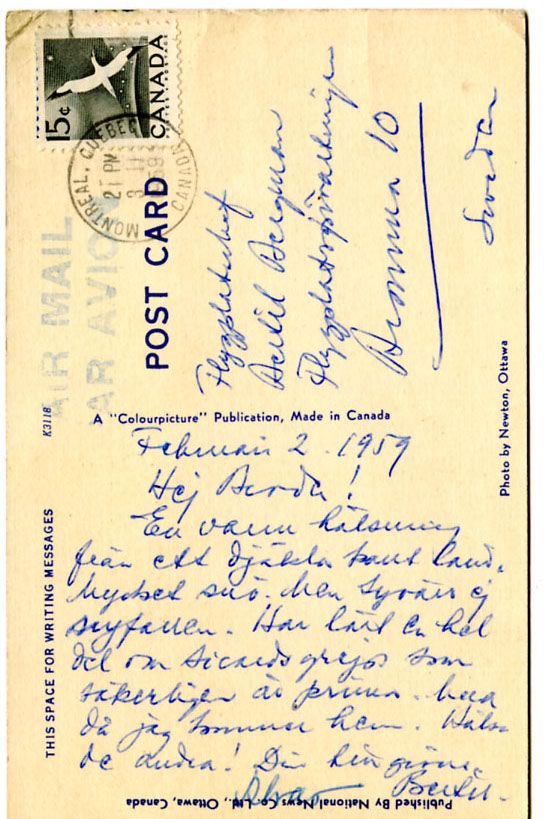 15¢
CANADA
MONTREAL, QUEBEC
21 PM
3 II
59
CANADA
AIR MAIL
PAR AVION
POST CARD
Flygplatschef
Bertil Bergman
Flygplatsförvaltningen
Bromma 10
Sweden
K3118
A "Colourpicture" Publication, Made in Canada
Photo by Newton, Ottawa
THIS SPACE FOR WRITING MESSAGES
Februari 2. 1959
Hej
En varm hälsning
från ett djäkla kallt land.
Mycket snö. Men tyvärr ej
nyfallen. Har lärt en hel
del om grejor som
säkerligen är prima. 
då jag kommer hem. Hälsa
de andra! Din
Bertil.
Published By National News Co Ltd., Ottawa, Canada